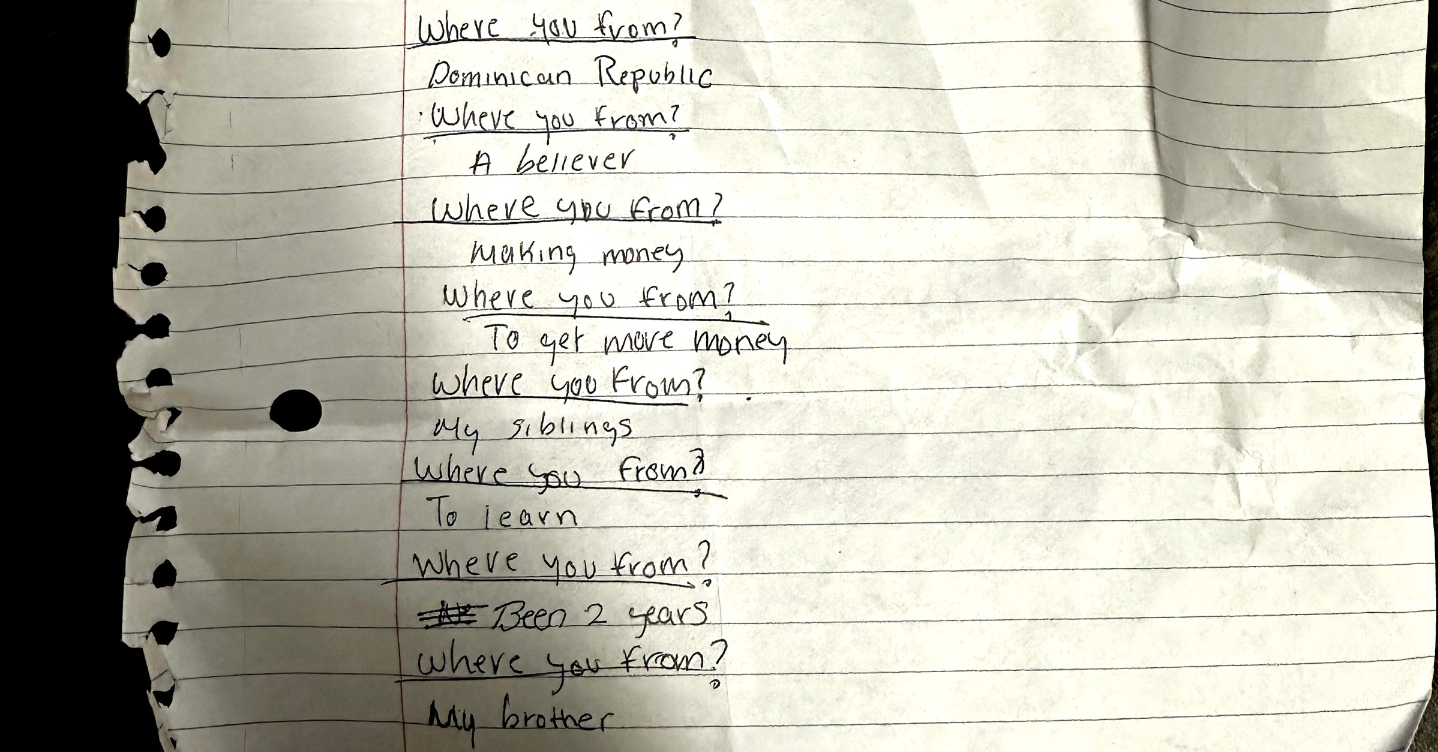 Where you from?
Dominican Republic
Where you from?
A believer
Where you from?
Making money
Where you from?
To get more money
Where you from?
My siblings
Where you from?
To learn
Where you from?
Been 2 years
Where you from?
My brother